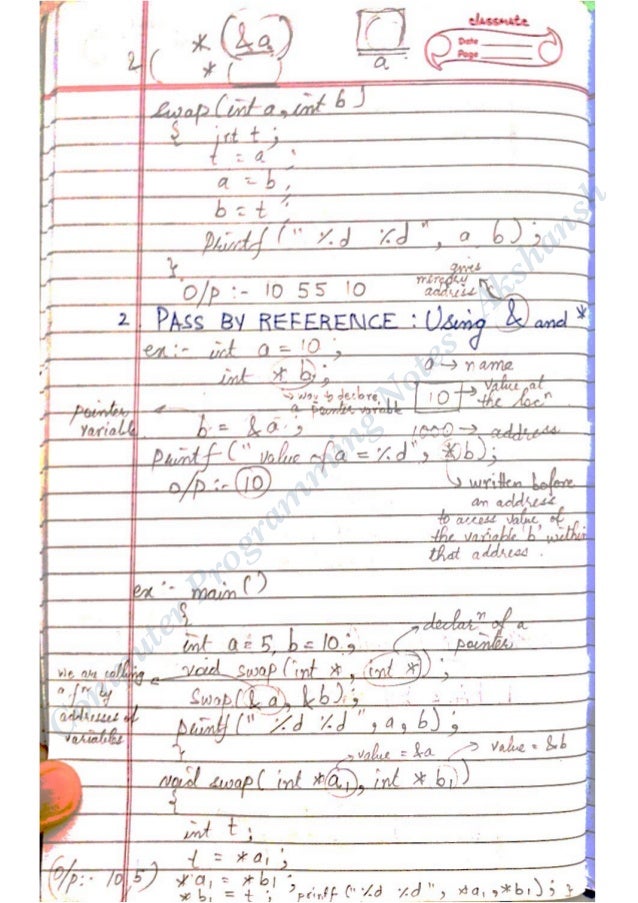 classmate
Date
Page
* (&a)
2 ( * ( )
a
swap(int a, int b)
{ int t ;
t = a ;
a = b ;
b = t ;
printf (" %d %d ", a, b) ;
}
O/p :- 10 5 5 10
gives
memory
address
2 PASS BY REFERENCE : Using & and *
ex :- int a = 10 ;
int * b ;
→ way to declare
a pointer variable
a → name
10 → value at
the locⁿ
1000 → address
pointer
variable
b = &a ;
printf (" value of a = %d ", *b) ;
o/p :- 10
↳ written before
an address
to access value of
the variable b within
that address.
ex :- main()
{
int a = 5, b = 10 ;
declarⁿ of a
pointer
void swap(int *, int *) ;
we are calling
a fⁿ by
addresses of
variables
swap(&a, &b) ;
printf (" %d %d ", a, b) ;
}
value = &a
value = &b
void swap( int *a₁, int * b₁)
{
int t ;
t = *a₁ ;
(O/p :- 10 5) *a₁ = *b₁ ;
*b₁ = t ; printf (" %d %d ", *a₁, *b₁) ; }
Computer Programming Notes - Akshansh